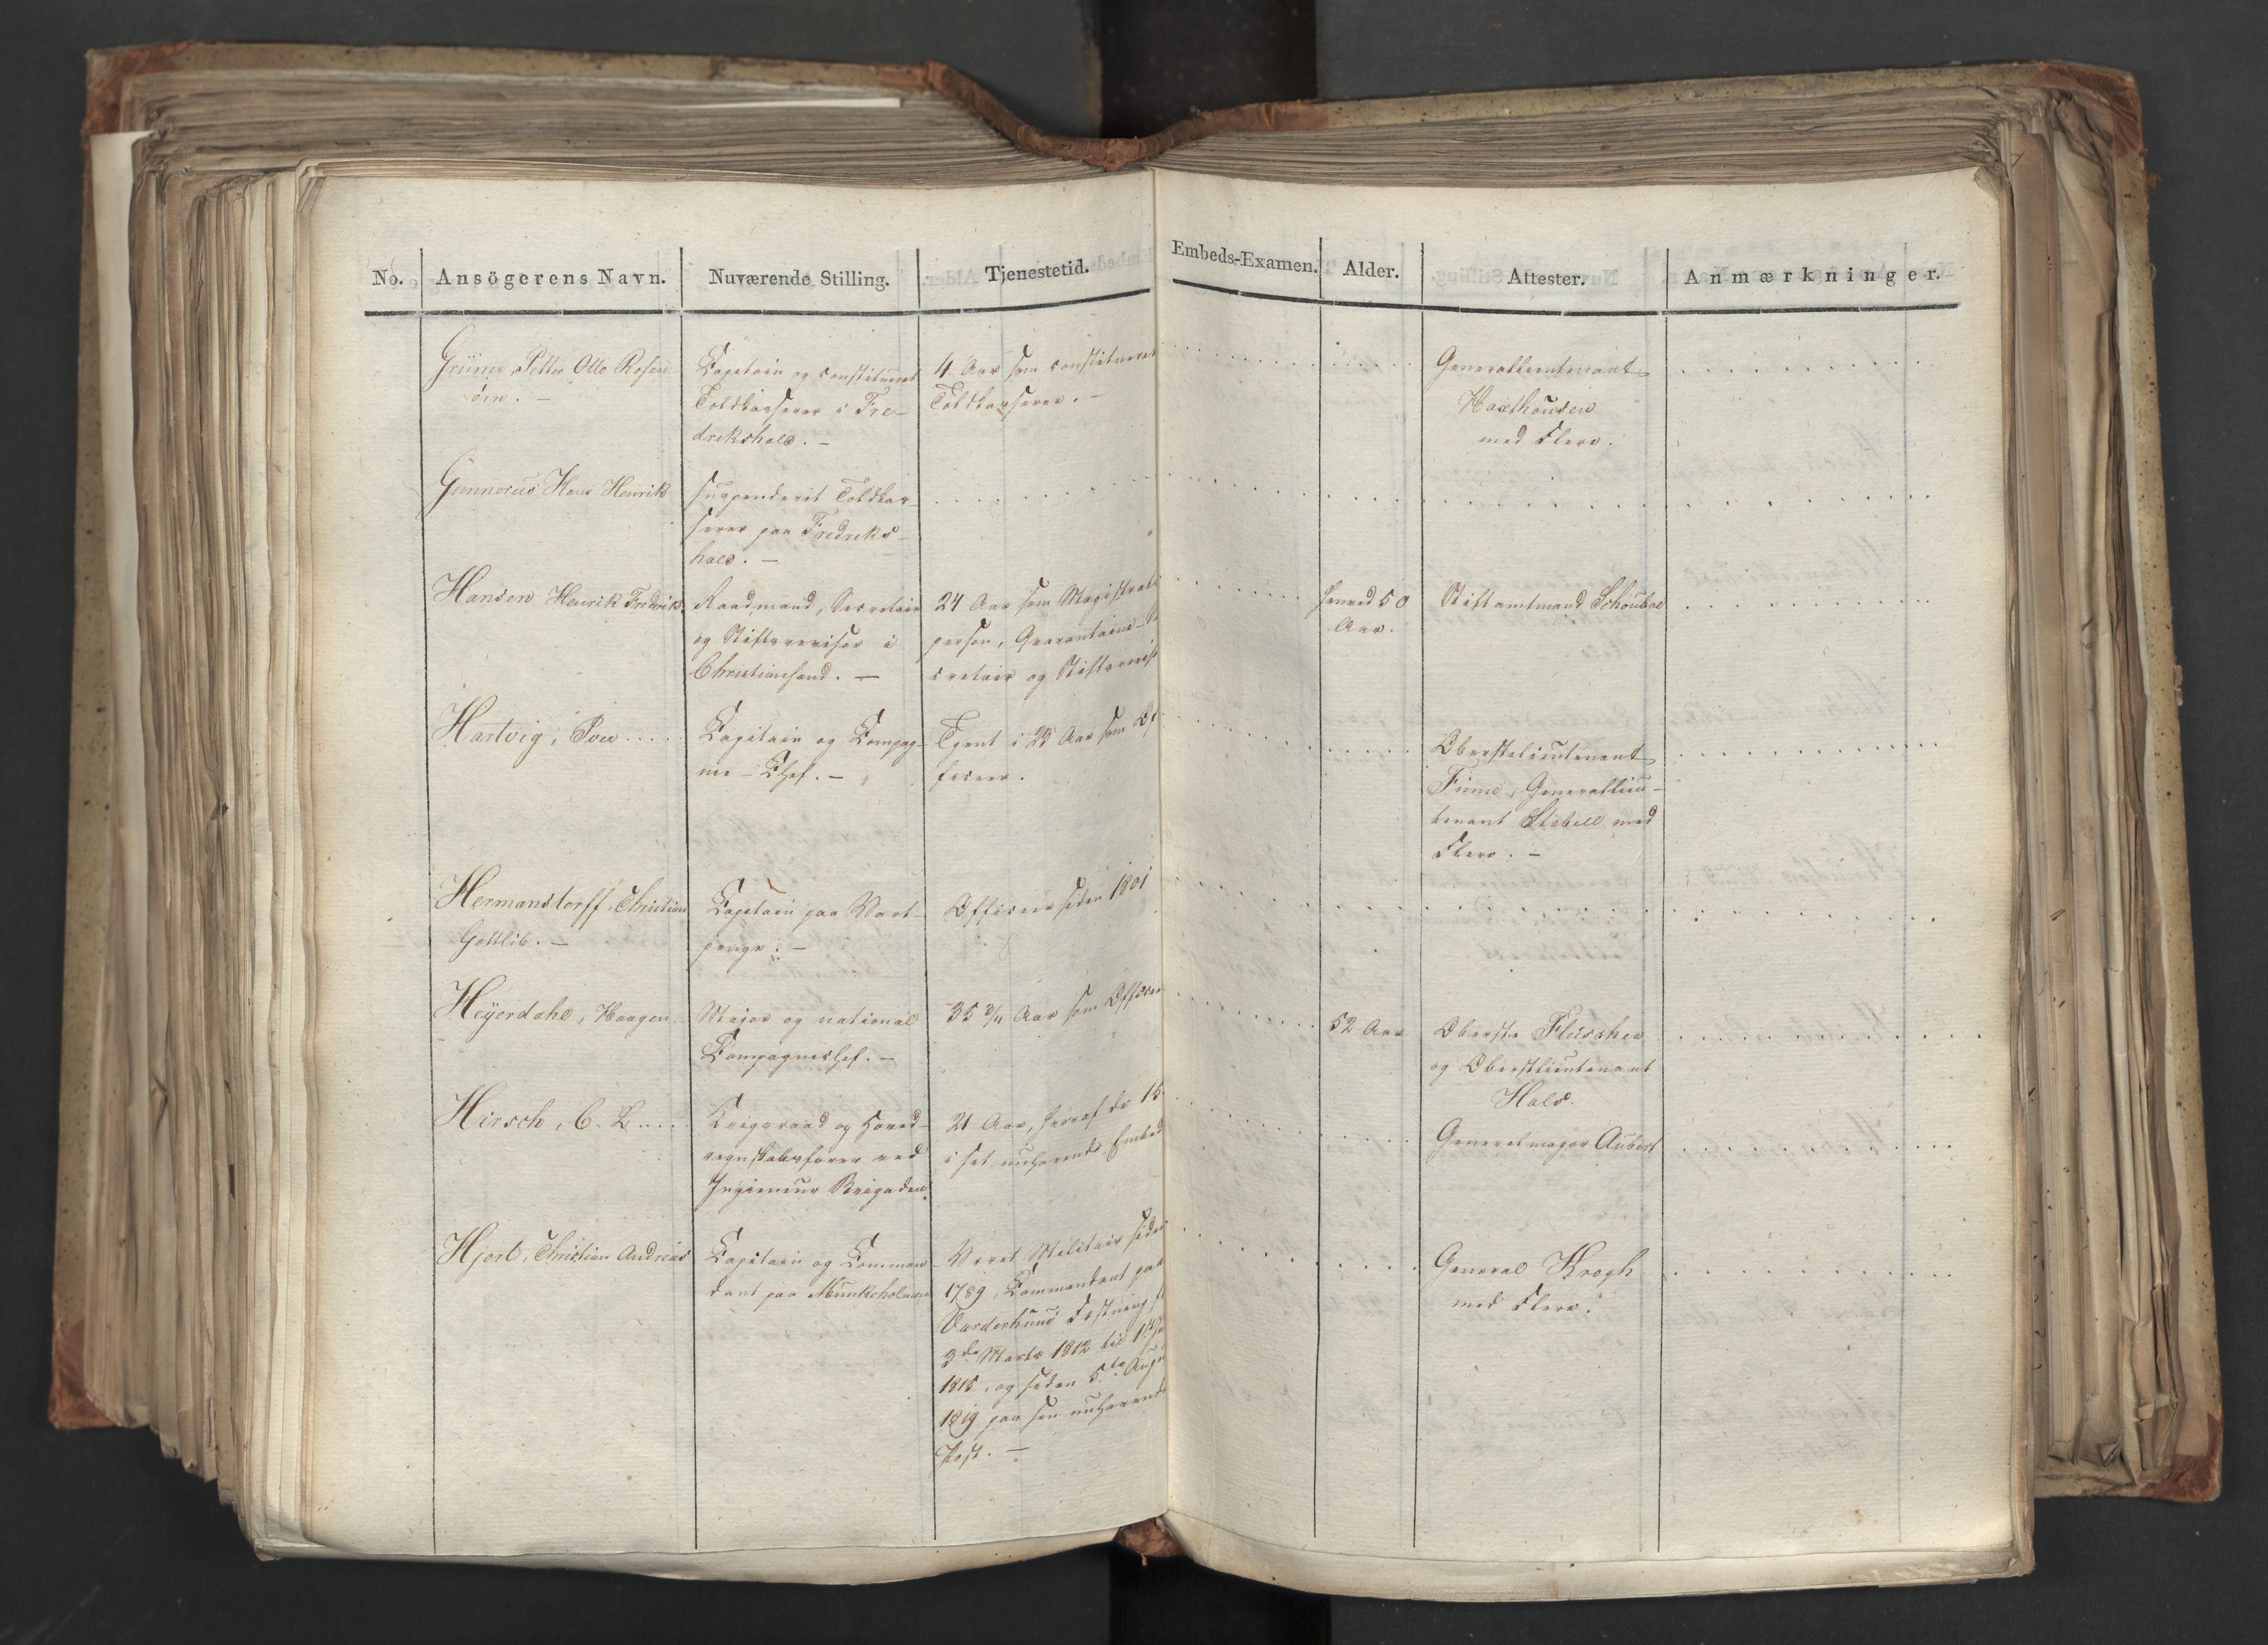 No. Ansögerens Navn. Nuværende Stilling. Tjenestetid. Embeds-Examen. Alder. Attester. Anmærkninger.
Grüner Petter Otto Rosen
örn. –
Capitain og constitueret
Toldkasserer i Fre-
drikshald. –
4 Aar som constitueret
Toldkasserer. –
Generallieutenant
Haxthausen
med Flere.
Gunnerus Hans Henrik
suspenderet Toldkas-
serer paa Fredriks-
hald. –
Hansen Henrik Frederik
Raadmand, Secretair
og Stiftsrevisor i
Christiansand. –
24 Aar som Magistrats
person, Qvarantaine-Se
cretair og Stiftsrevis
henved 50
Aar.
Stiftamtmand Schouboe
Hartvig, Povel
Capitain og Compag-
nie-Chef. –
Tjent i 23 Aar som Of
ficeer.
Oberstelieutenant
Finne, Generallieu-
tenant Stabell med
Flere. –
Hermanstorff, Christian
Gottlib. –
Capitain paa Vart-
penge. –
Officeer siden 1801
Heyerdahl, Haagen.
Major og national
Compagniechef. –
35 3/4 Aar som Officeer
52 Aar
Oberste Fleischer
og Oberstlieutenant
Hals.
Hirsch, C. L.
Krigsraad og Hoved-
regnskabsfører ved
Ingienieur Brigaden.
21 Aar, heraf de 15
i sit nuhavende Embed
Generalmajor Aubert
Hjort, Christian Andreas
Capitain og Comman-
dant paa Munkholmen
Været Militair siden
1789, Commandant paa
Vardøehuus Fæstning fr
3de Marts 1812 til
1815, og siden 5te Aug
1819 paa sin nuhavende
Post. –
General Krogh
med Flere.